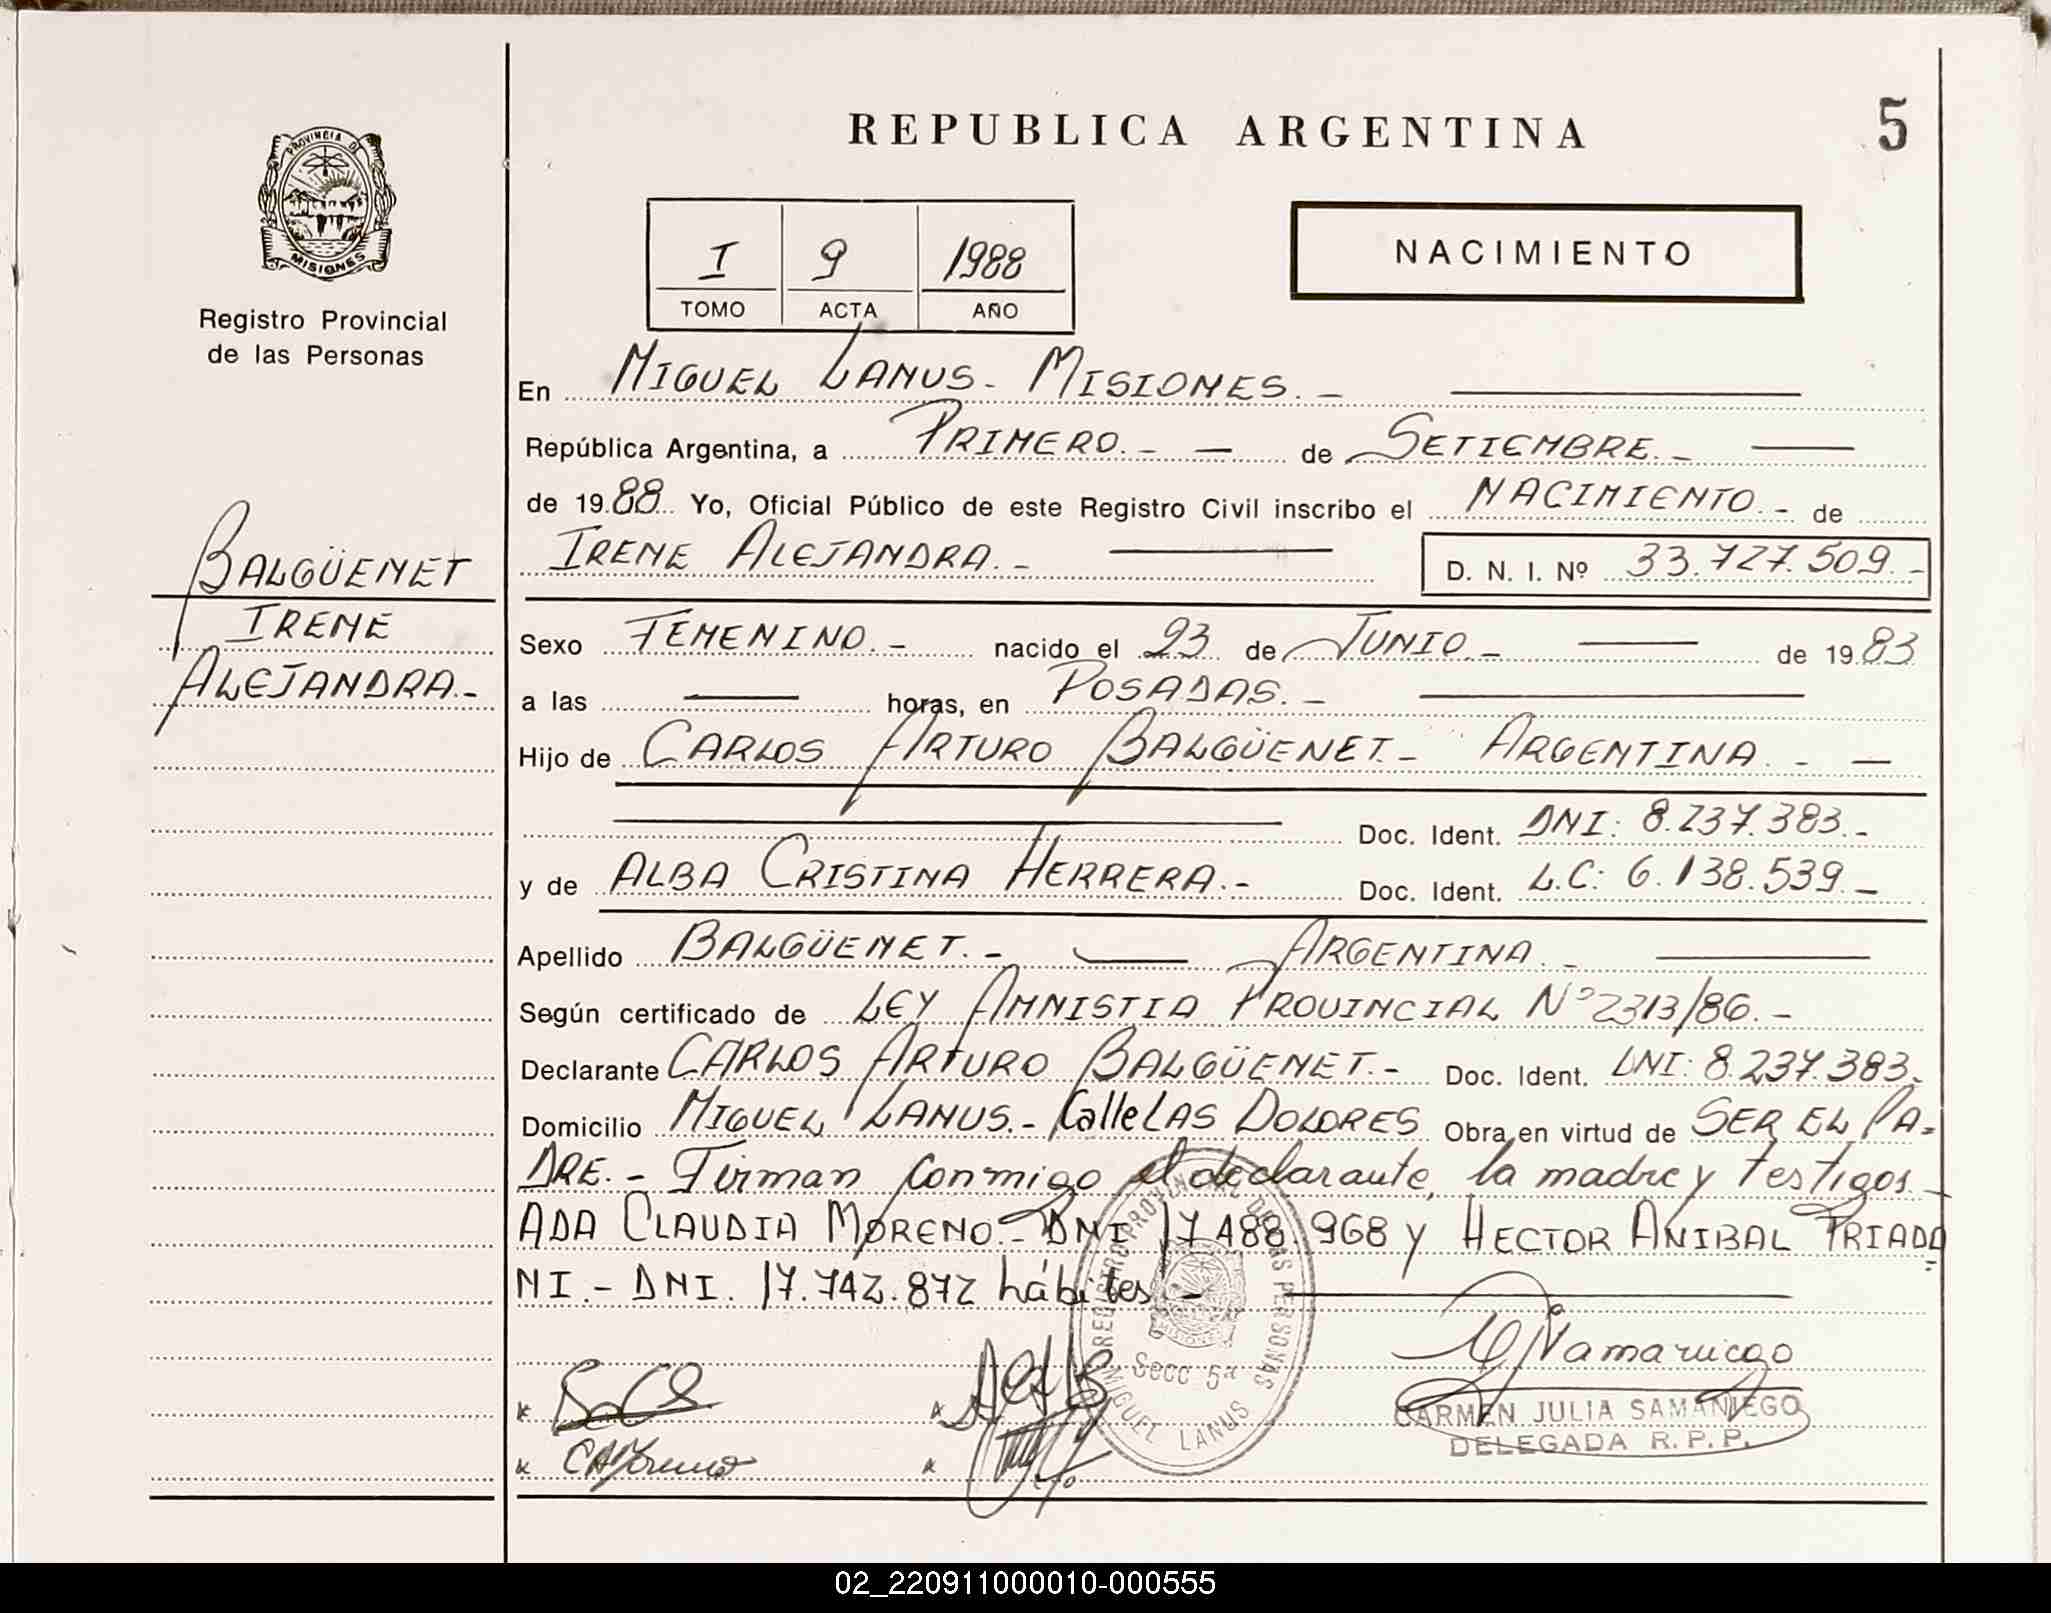 REPUBLICA ARGENTINA
5
PROVINCIA D
MISIONES
Registro Provincial
de las Personas
I 9 1988
TOMO ACTA AÑO
NACIMIENTO
En MIGUEL LANUS - MISIONES. -
República Argentina, a PRIMERO. - de SETIEMBRE. -
de 1988 Yo, Oficial Público de este Registro Civil inscribo el NACIMIENTO. - de
IRENE ALEJANDRA. - D. N. I. Nº 33.727.509. -
BALGÜENET
IRENE
ALEJANDRA. -
Sexo FEMENINO. - nacido el 23 de JUNIO. - de 1983
a las — horas, en POSADAS. -
Hijo de CARLOS ARTURO BALGÜENET. - ARGENTINA. -
Doc. Ident. DNI: 8.237.383. -
y de ALBA CRISTINA HERRERA. - Doc. Ident. L.C: 6.138.539. -
Apellido BALGÜENET. - ARGENTINA. -
Según certificado de LEY AMNISTIA PROVINCIAL Nº 2313/86. -
Declarante CARLOS ARTURO BALGÜENET. - Doc. Ident. DNI: 8.237.383.
Domicilio MIGUEL LANUS. - Calle LAS DOLORES Obra en virtud de SER EL PA-
DRE. - Firman conmigo el declarante, la madre y testigos
ADA CLAUDIA MORENO. - DNI 17.488.968 y HECTOR ANIBAL PRIADO
NI. - DNI. 17.742.872 hábiles. -
REGISTRO PROVINCIAL DE LAS PERSONAS
MISIONES
Secc 5ª
MIGUEL LANUS
CARMEN JULIA SAMANIEGO
DELEGADA R. P. P.
02_220911000010-000555